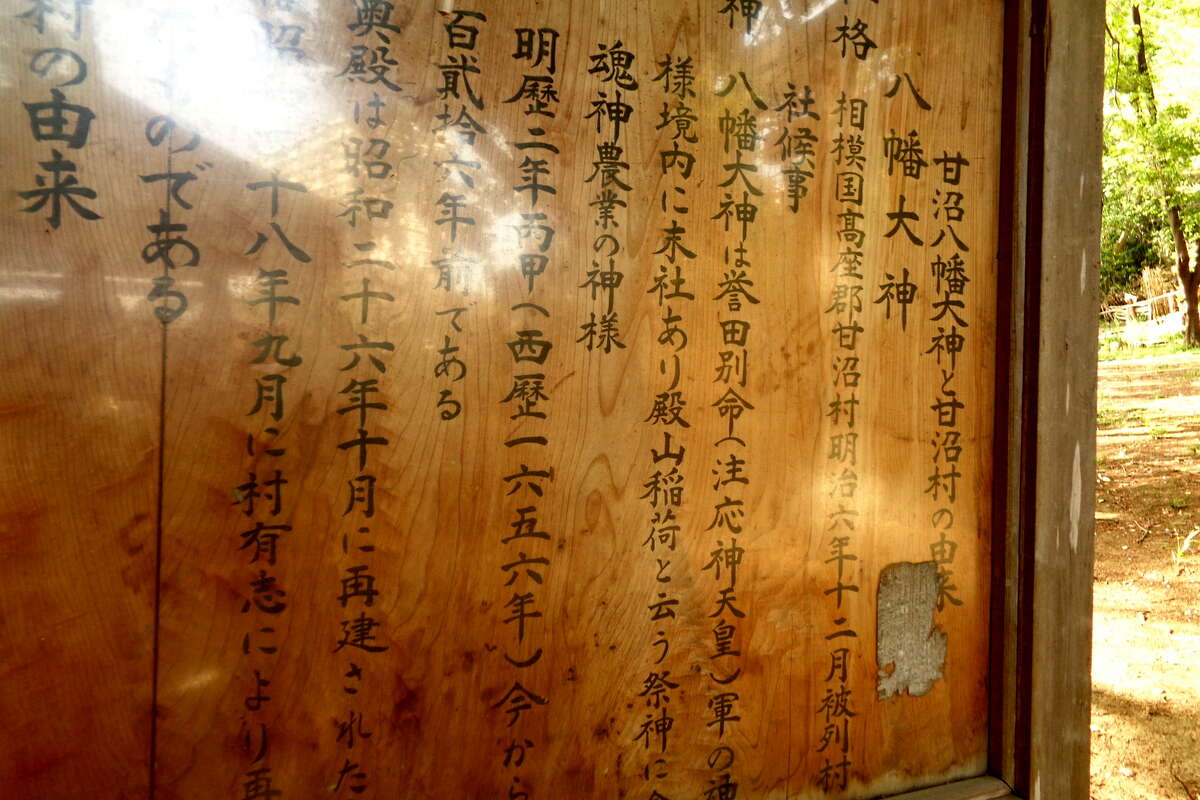 甘沼八幡大神と甘沼村の由来
八幡大神
格 相模国高座郡甘沼村明治六年十二月被列村
社候事
神 八幡大神は誉田別命(注応神天皇)軍の神
様境内に末社あり殿山稲荷と云う祭神に
魂神農業の神様
明歴二年丙甲(西歴一六五六年)今から
百貮拾六年前である
奥殿は昭和二十六年十月に再建された
十八年九月に村有志により再
のである
村の由来